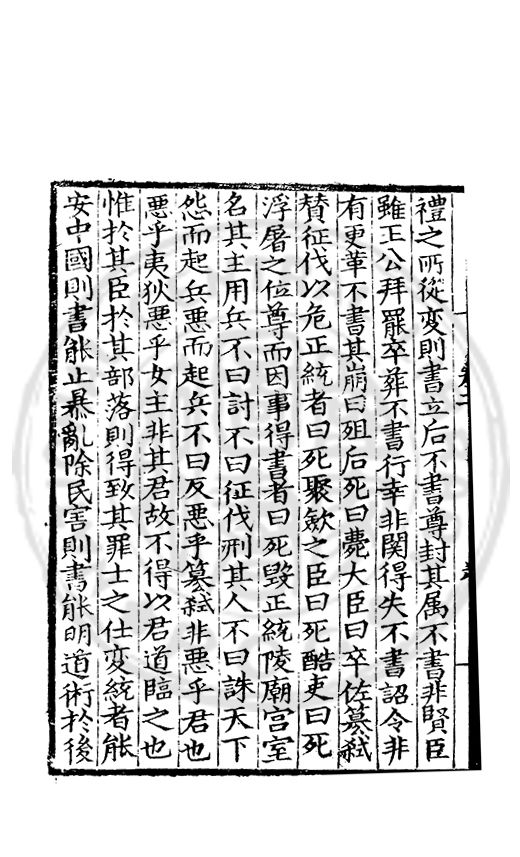 禮之所從變則書立后不書尊封其属不書非賢臣
雖王公拜罷卒葬不書行幸非関得失不書詔令非
有更革不書其崩曰殂后死曰薨大臣曰卒佐簒弑
賛征伐以危正統者曰死聚歛之臣曰死酷吏曰死
浮屠之位尊而因事得書者曰死毀正統陵廟宫室
名其主用兵不曰討不曰征伐刑其人不曰誅天下
怨而起兵悪而起兵不曰反悪乎簒弑非悪乎君也
悪乎夷狄悪乎女主非其君故不得以君道臨之也
惟於其臣於其部落則得致其罪士之仕变統者能
安中國則書能止暴亂除民害則書能明道術於後